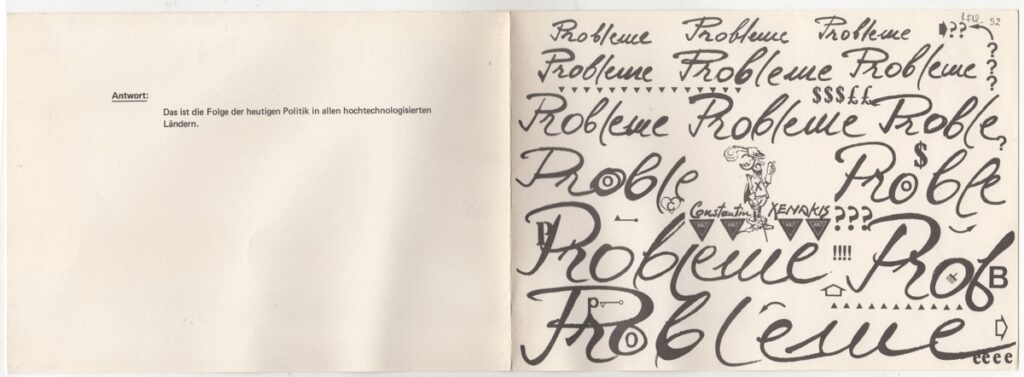 Antwort:
Das ist die Folge der heutigen Politik in allen hochtechnologisierten
Ländern.
52
Probleme Probleme Probleme ??
?
?
?
Probleme Probleme Probleme
$$$££
Probleme Probleme Proble
?
Proble $ Proble
C
Constantin XENAKIS ???
HALT HALT HALT HALT
P Probleme !!!! Prob B
P Probleme
eeee